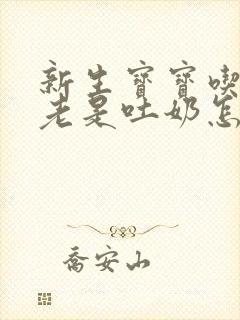 新生寶寶喫
老是吐奶怎
喬安山